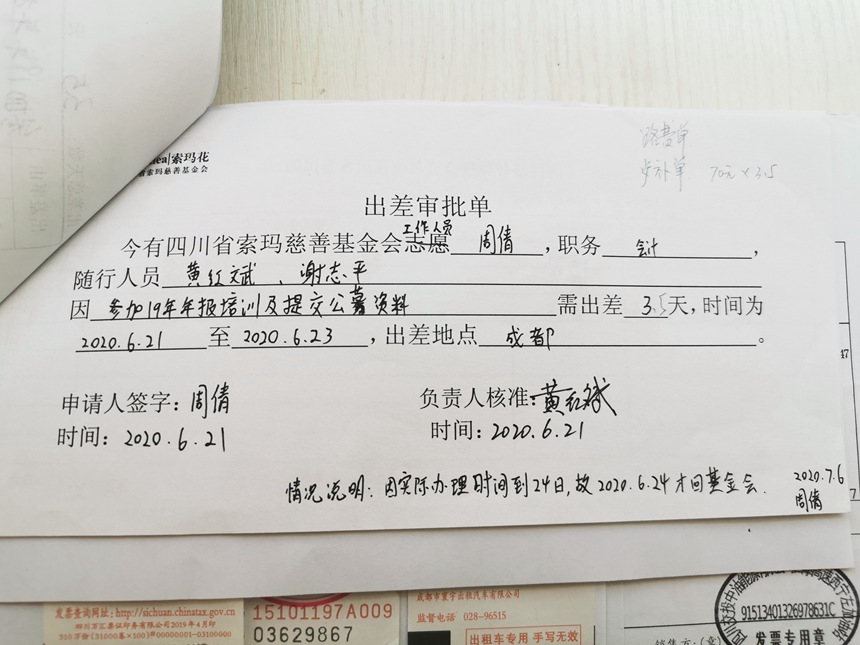 索玛花
省索玛慈善基金会
路费单
步补单 70元×3.5
出差审批单
工作人员
今有四川省索玛慈善基金会志愿 周倩 ,职务 会计 ,
随行人员 黄红斌、谢志平
因 参加19年年报培训及提交公募资料 需出差 3.5天,时间为
2020.6.21 至 2020.6.23 ,出差地点 成都 。
申请人签字:周倩 负责人核准:黄红斌
时间:2020.6.21 时间:2020.6.21
情况说明:因实际办理时间到24日,故2020.6.24才回基金会.
2020.7.6
周倩
发票查询网址:http://sichuan.chinatax.gov.cn
四川万汇票证印务有限公司2019年4月印
310万份(31000卷×100)#00000001-03100000
15101197A009
03629867
成都市寰宇出租汽车有限公司
监督电话 028-96515
出租车专用 手写无效
91513401326978631C
发票专用章
销售方:(章)